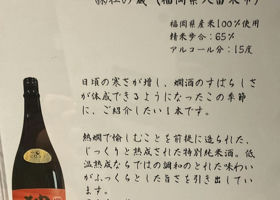 の蔵(福岡県久留米市)
福岡県産米100%使用
精米歩合:65%
アルコール分:15度
日頃の寒さが増し、燗酒のすばらしさ
が体感できるようになったこの季節
に、ご紹介したい1本です。
熱燗で愉しむことを前提に造られた、
じっくりと熟成された特別純米酒。低
温熟成ならではの調和のとれた味わい
がふっくらとした旨さを引き出してい
ます。